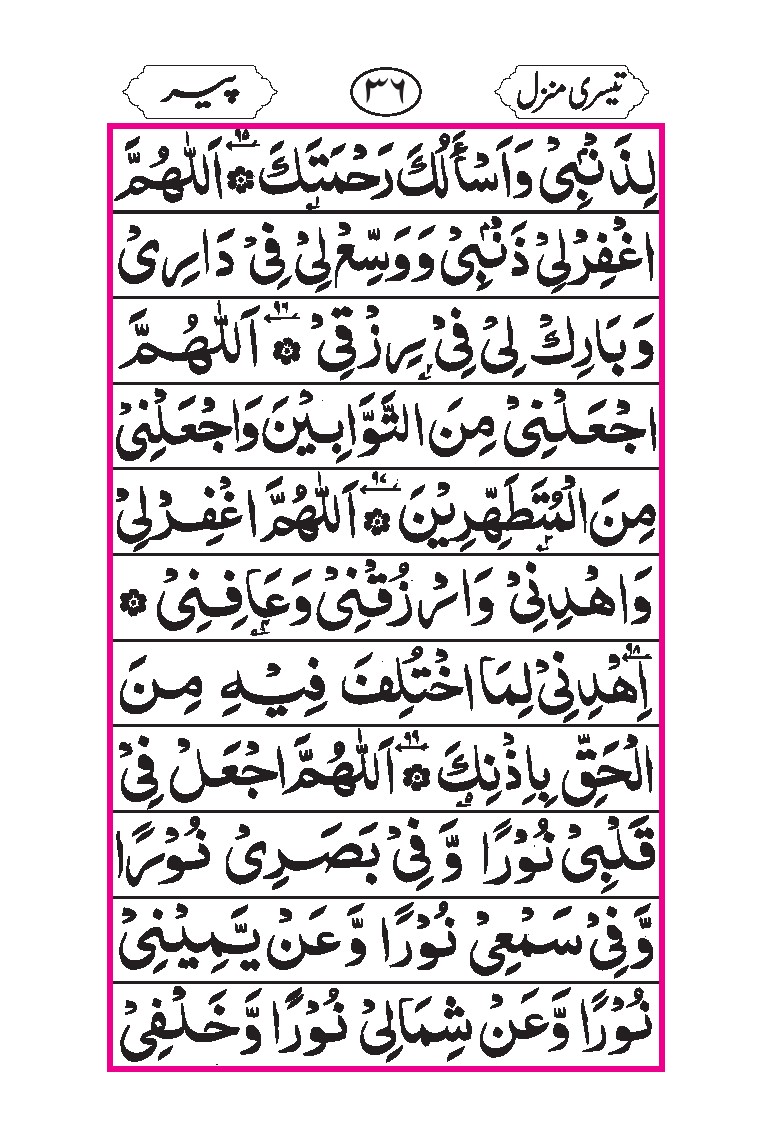 تیسری منزل ۳۶ پیر
لِذَنْۢبِیْ وَاَسْأَلُكَ رَحْمَتَكَ ۹۵ اَللّٰهُمَّ
اغْفِرْلِیْ ذَنْۢبِیْ وَوَسِّعْ لِیْ فِیْ دَارِیْ
وَبَارِكْ لِیْ فِیْ رِزْقِیْ ۹۶ اَللّٰهُمَّ
اجْعَلْنِیْ مِنَ التَّوَّابِیْنَ وَاجْعَلْنِیْ
مِنَ الْمُتَطَهِّرِیْنَ ۹۷ اَللّٰهُمَّ اغْفِرْلِیْ
وَاهْدِنِیْ وَارْزُقْنِیْ وَعَافِنِیْ
۹۸ اِهْدِنِیْ لِمَا اخْتُلِفَ فِیْهِ مِنَ
الْحَقِّ بِاِذْنِكَ ۹۹ اَللّٰهُمَّ اجْعَلْ فِیْ
قَلْبِیْ نُوْرًا وَّفِیْ بَصَرِیْ نُوْرًا
وَّفِیْ سَمْعِیْ نُوْرًا وَّعَنْ یَّمِیْنِیْ
نُوْرًا وَّعَنْ شِمَالِیْ نُوْرًا وَّخَلْفِیْ